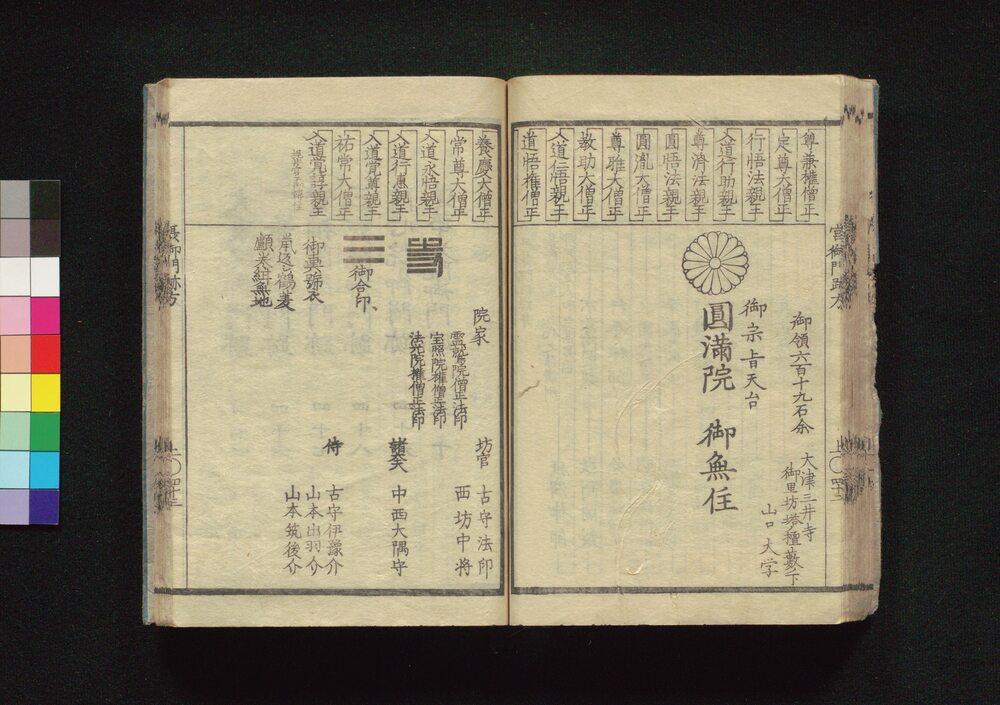 尊兼権僧正
定尊大僧正
行悟法親王
入道行助親王
尊済法親王
圓悟法親王
圓胤大僧正
尊雅大僧正
教助大僧正
入道仁悟親王
道悟権僧正
御領六百十九石余
大津三井寺
御里坊塔檀藪ノ下
山口大学
御宗旨天台
圓満院 御無住
養慶大僧正
常尊大僧正
入道永悟親王
入道行恵親王
入道覚尊親王
祐常大僧正
入道覚諄親王
院家
霊鷲院僧正法印
宝照院権僧正法印
法光院権僧正法印
御合印
御輿舁衣
坊官 古守法印
西坊中将
諸大夫 中西大隅守
侍 古守伊豫介
山本出羽介
山本筑後介
宮御門跡方